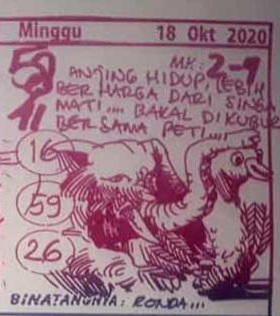 Minggu 18 Okt 2020
MK: 2-9
59 ANJING HIDUP, LEBIH
BERHARGA DARI SINGA
11 MATI.... BAKAL DIKUBUR
BERSAMA PETI....!
16
59
26
BINATANGNYA: RONDA...